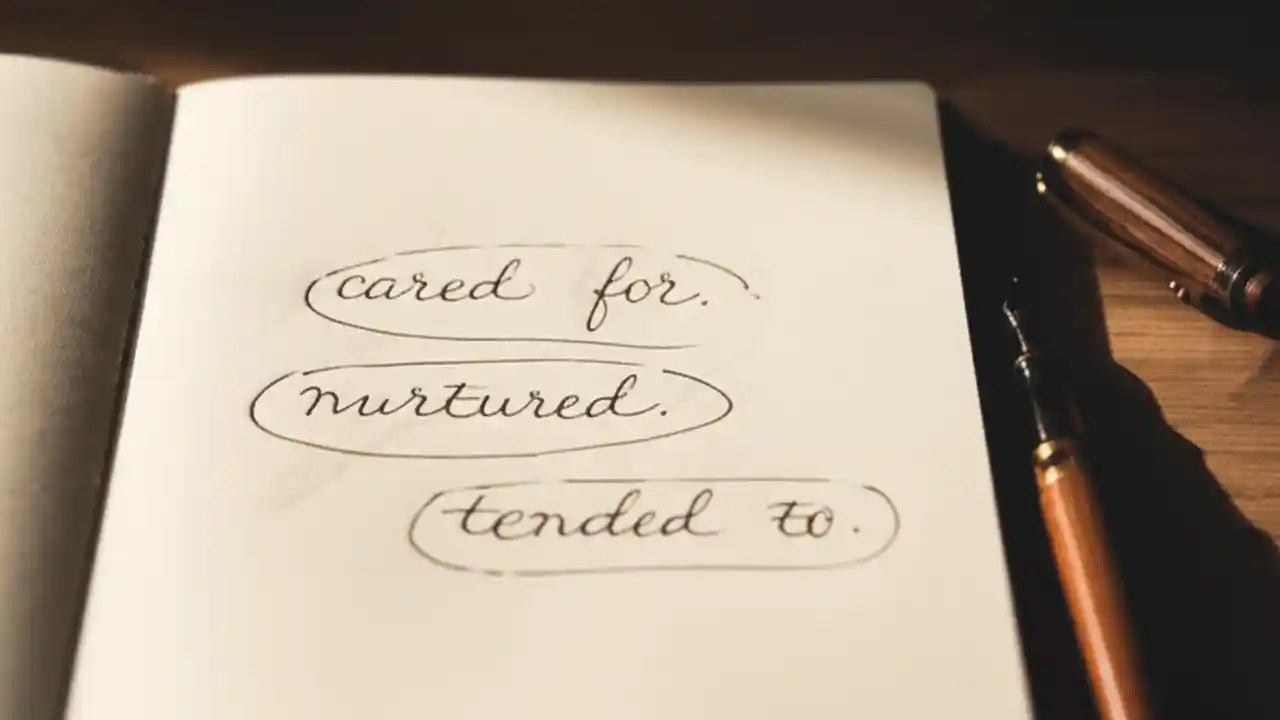 cared for.
nurtured.
tended to.